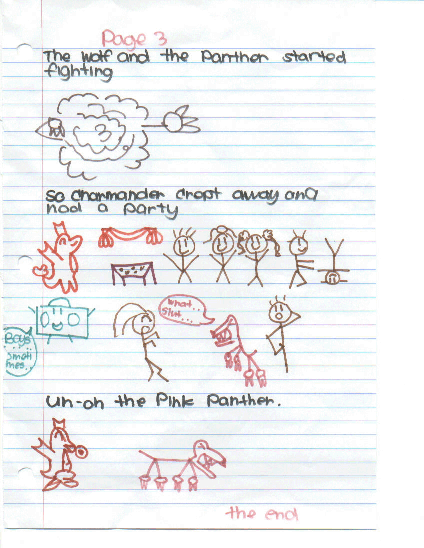 Page 3
The wolf and the Panther started
fighting
3
so Charmander crept away and
had a party
what..
Boys
the Pink Panther.
the end